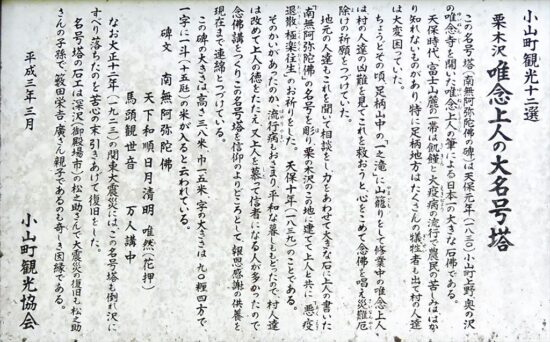 小山町観光十二選
栗木沢 唯念上人の大名号塔
この名号塔(南無阿弥陀佛の碑)は天保元年(一八三〇)小山町上野奥の沢
の唯念寺を開いた唯念上人の筆による日本一の大きな石佛である。
天保時代、富士山麓の一帯は飢饉と大疫病の流行で農民の苦しみははか
り知れないものがあり特に足柄地方はたくさんの犠牲者も出て村の人達
は大変困っていた。
ちょうどその頃、足柄山中の「之滝」に山籠りをして修業中の唯念上人
は村の人達の凶難を見てこれを救おうと、心をこめて念佛を唱え災難厄
除けの祈願をつづけていた。
地元の人達もこれを聞いて相談をし、力をあわせて大きな石に上人の書いた
「南無阿弥陀佛」の名号を彫り栗の木沢のこの地に建て上人と共に「悪疫
退散、極楽往生」のお祈りをした。天保十年(一八三九)のことである。
そのかいがあったのか、流行病もおさまり、平和な暮しももどったので村人達
は改めて上人の徳をたたえ又上人を慕って信者になる人が多かったので
念佛講をつくりこの名号塔を信仰のよりどころとして報恩感謝の供養を
現在まで連綿とつづけている。
この碑の大きさは高さ五・八米、巾一・五米、字の大きさは九〇糎四方で、
一字に一斗(十五瓩)の米が入ると云われている。
碑文 南無阿弥陀佛
天下和順日月清明 唯然(花押)
馬頭観世音 万人講中
なお大正十二年(一九二三)の関東大震災にはこの名号塔も倒れ沢に
すべり落ちたのを苦心の末引きあげて復旧をした。
名号塔の石工は深沢(御殿場市)の松之助さんで大震災の復旧も松之助
さんの子孫で、簑田栄吉・廣さん親子であるのも奇しき因縁である。
平成三年三月
小山町観光協会